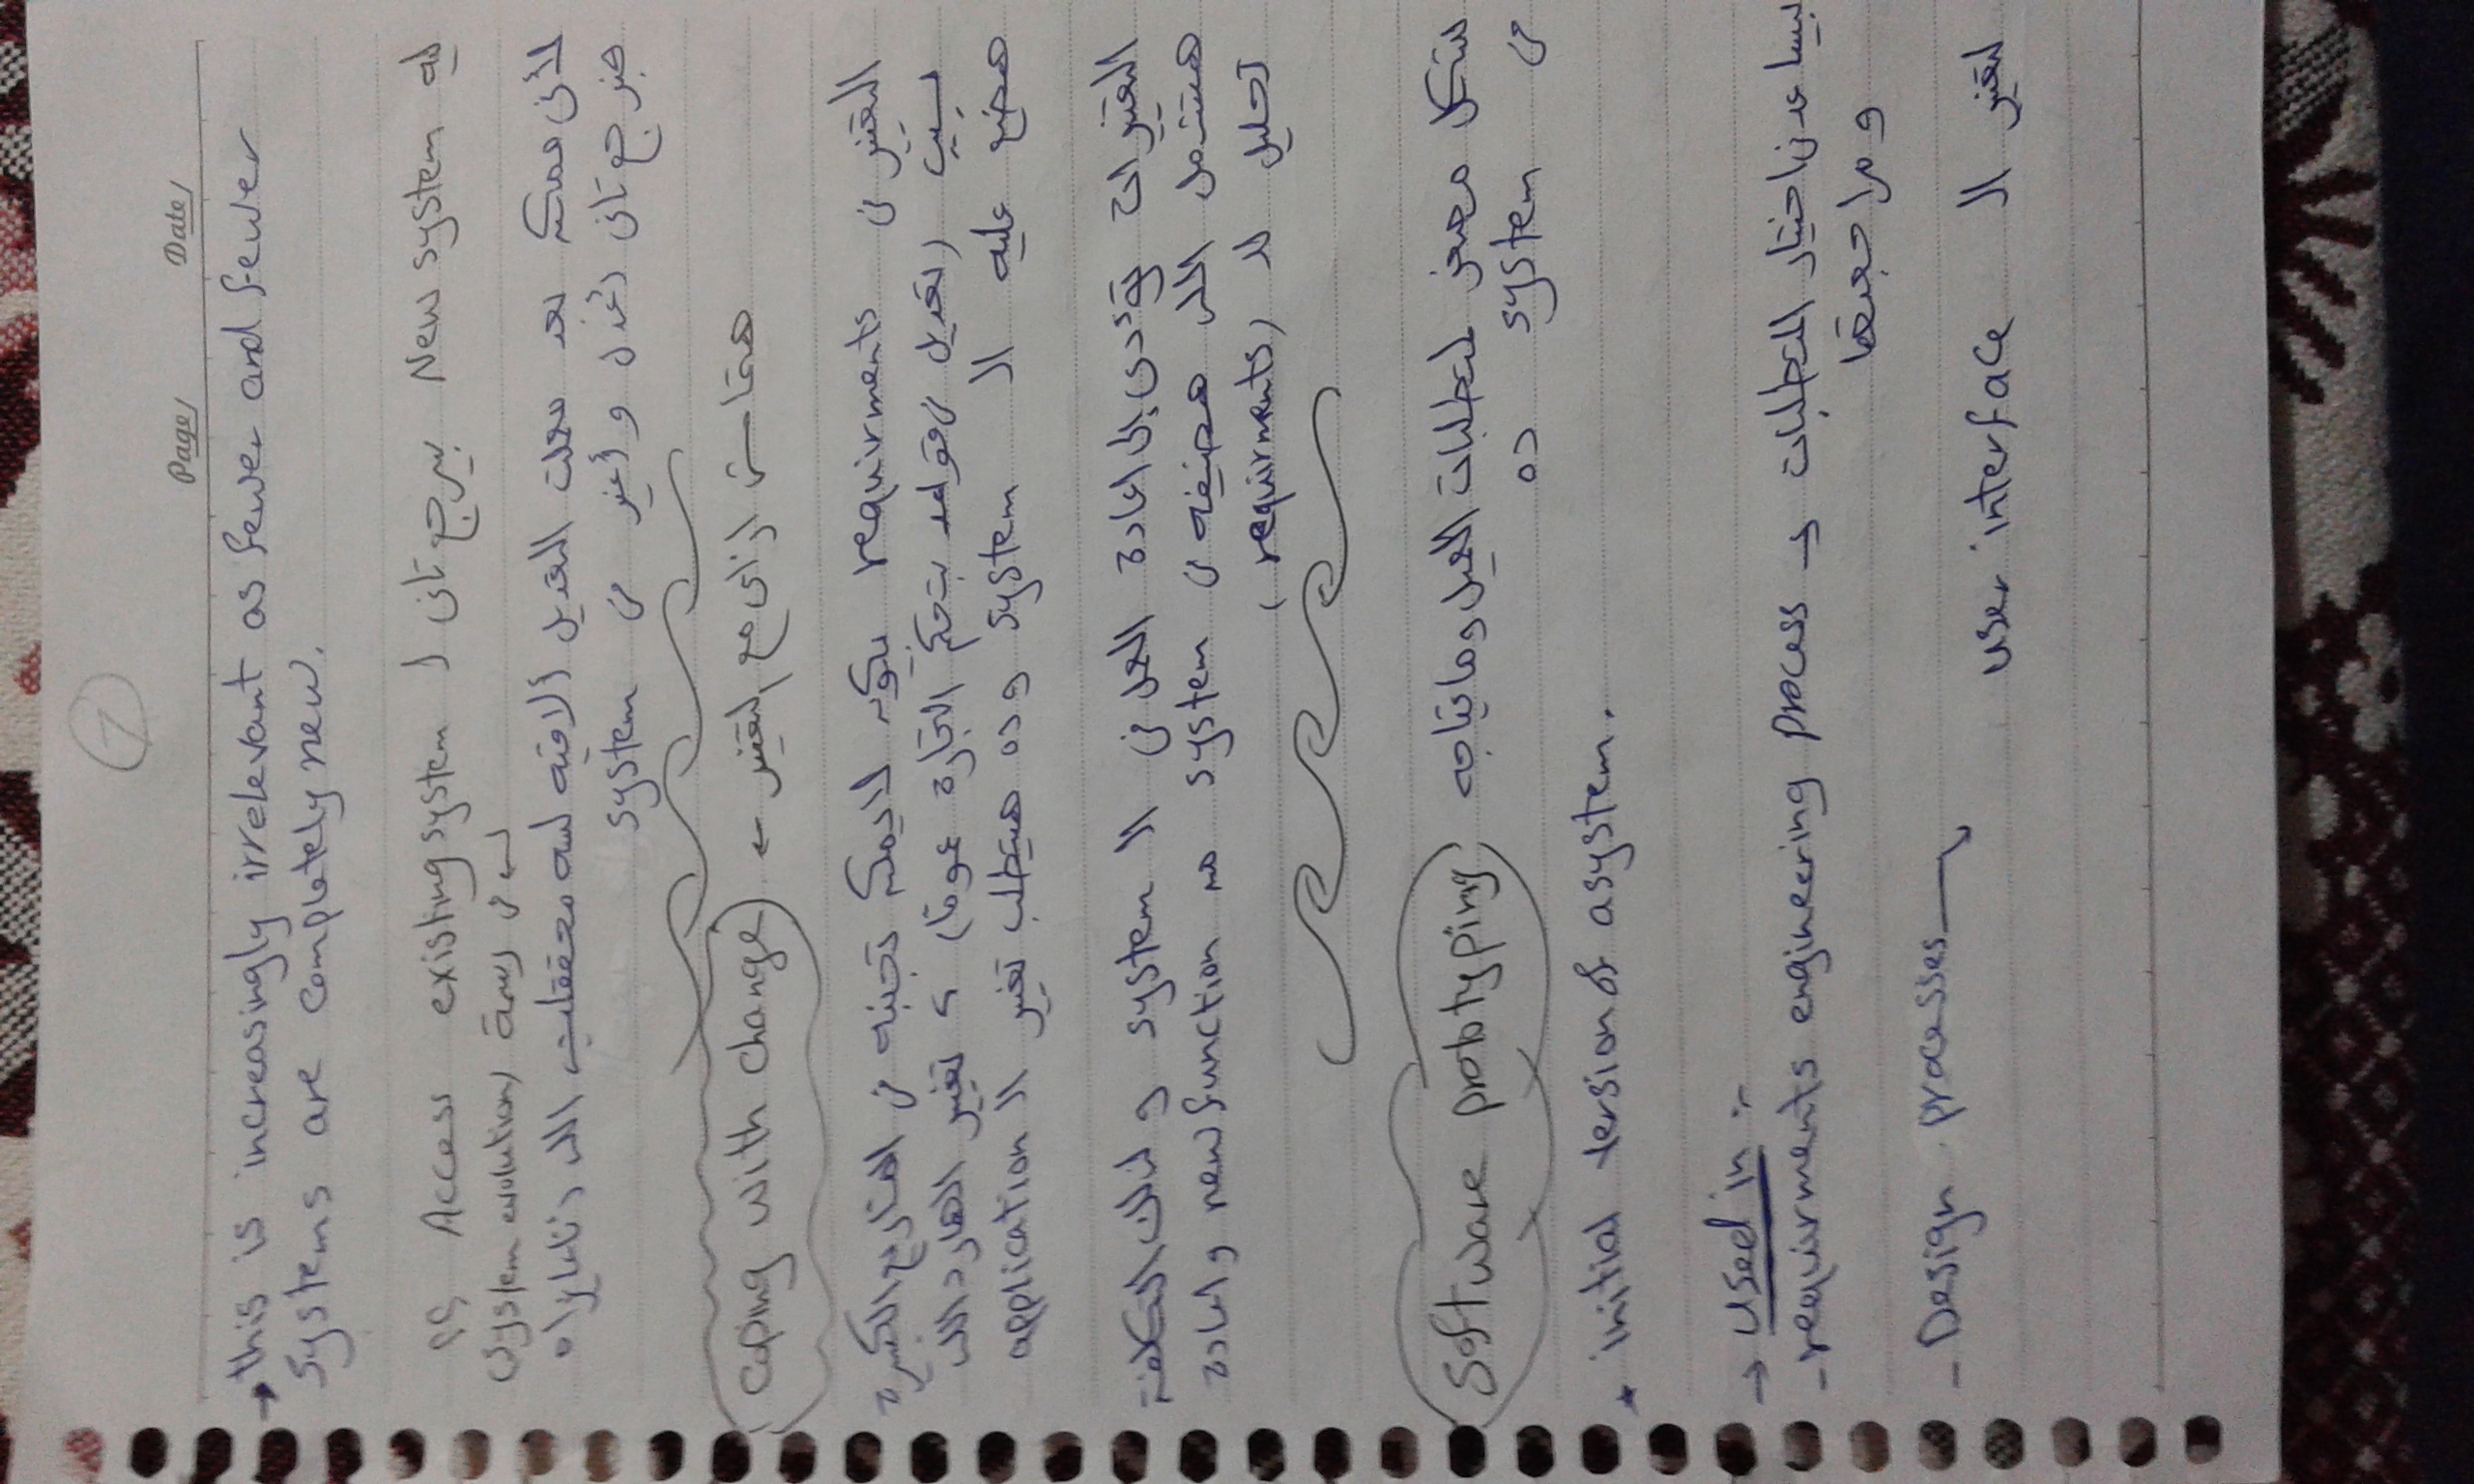 7
Page/ Date/
→ this is increasingly irrelevant as fewer and fewer
systems are completely new.
ليه New system بيرجع تانى لـ Access existing system ؟؟
فى رسمة (system evolution)
لأنى ممكن بعد معملت التعديل ألاقيه لسه محققليش اللى انا عايزاه
هنرجع تانى أعدل وأغير فى system
هتعامل ازاى مع التغيير ← coping with change
التغيير فى requirments بيكون لا يمكن تجنبه فى المشاريع الكبيرة
بسبب (تعديل فى قواعد بتحكم التجارة عموما) ، تغيير الهارد اللى
هضع عليه الـ system وده هيتطلب تغيير الـ application
التغييرات تؤدى إلى اعادة العمل فى الـ system ولذلك التكلفة
هتشمل اللى هضيفه فى system من new function واعادة
تحليل للـ (requirments)
software prototyping بشكل مصغر لمتطلبات العميل وما يحتاجه
فى system ده
* initial version of a system.
→ used in :-
- requirments engineering process → بيساعد فى اختيار المتطلبات
ومراجعتها
- Design processes →
لتغيير الـ user interface